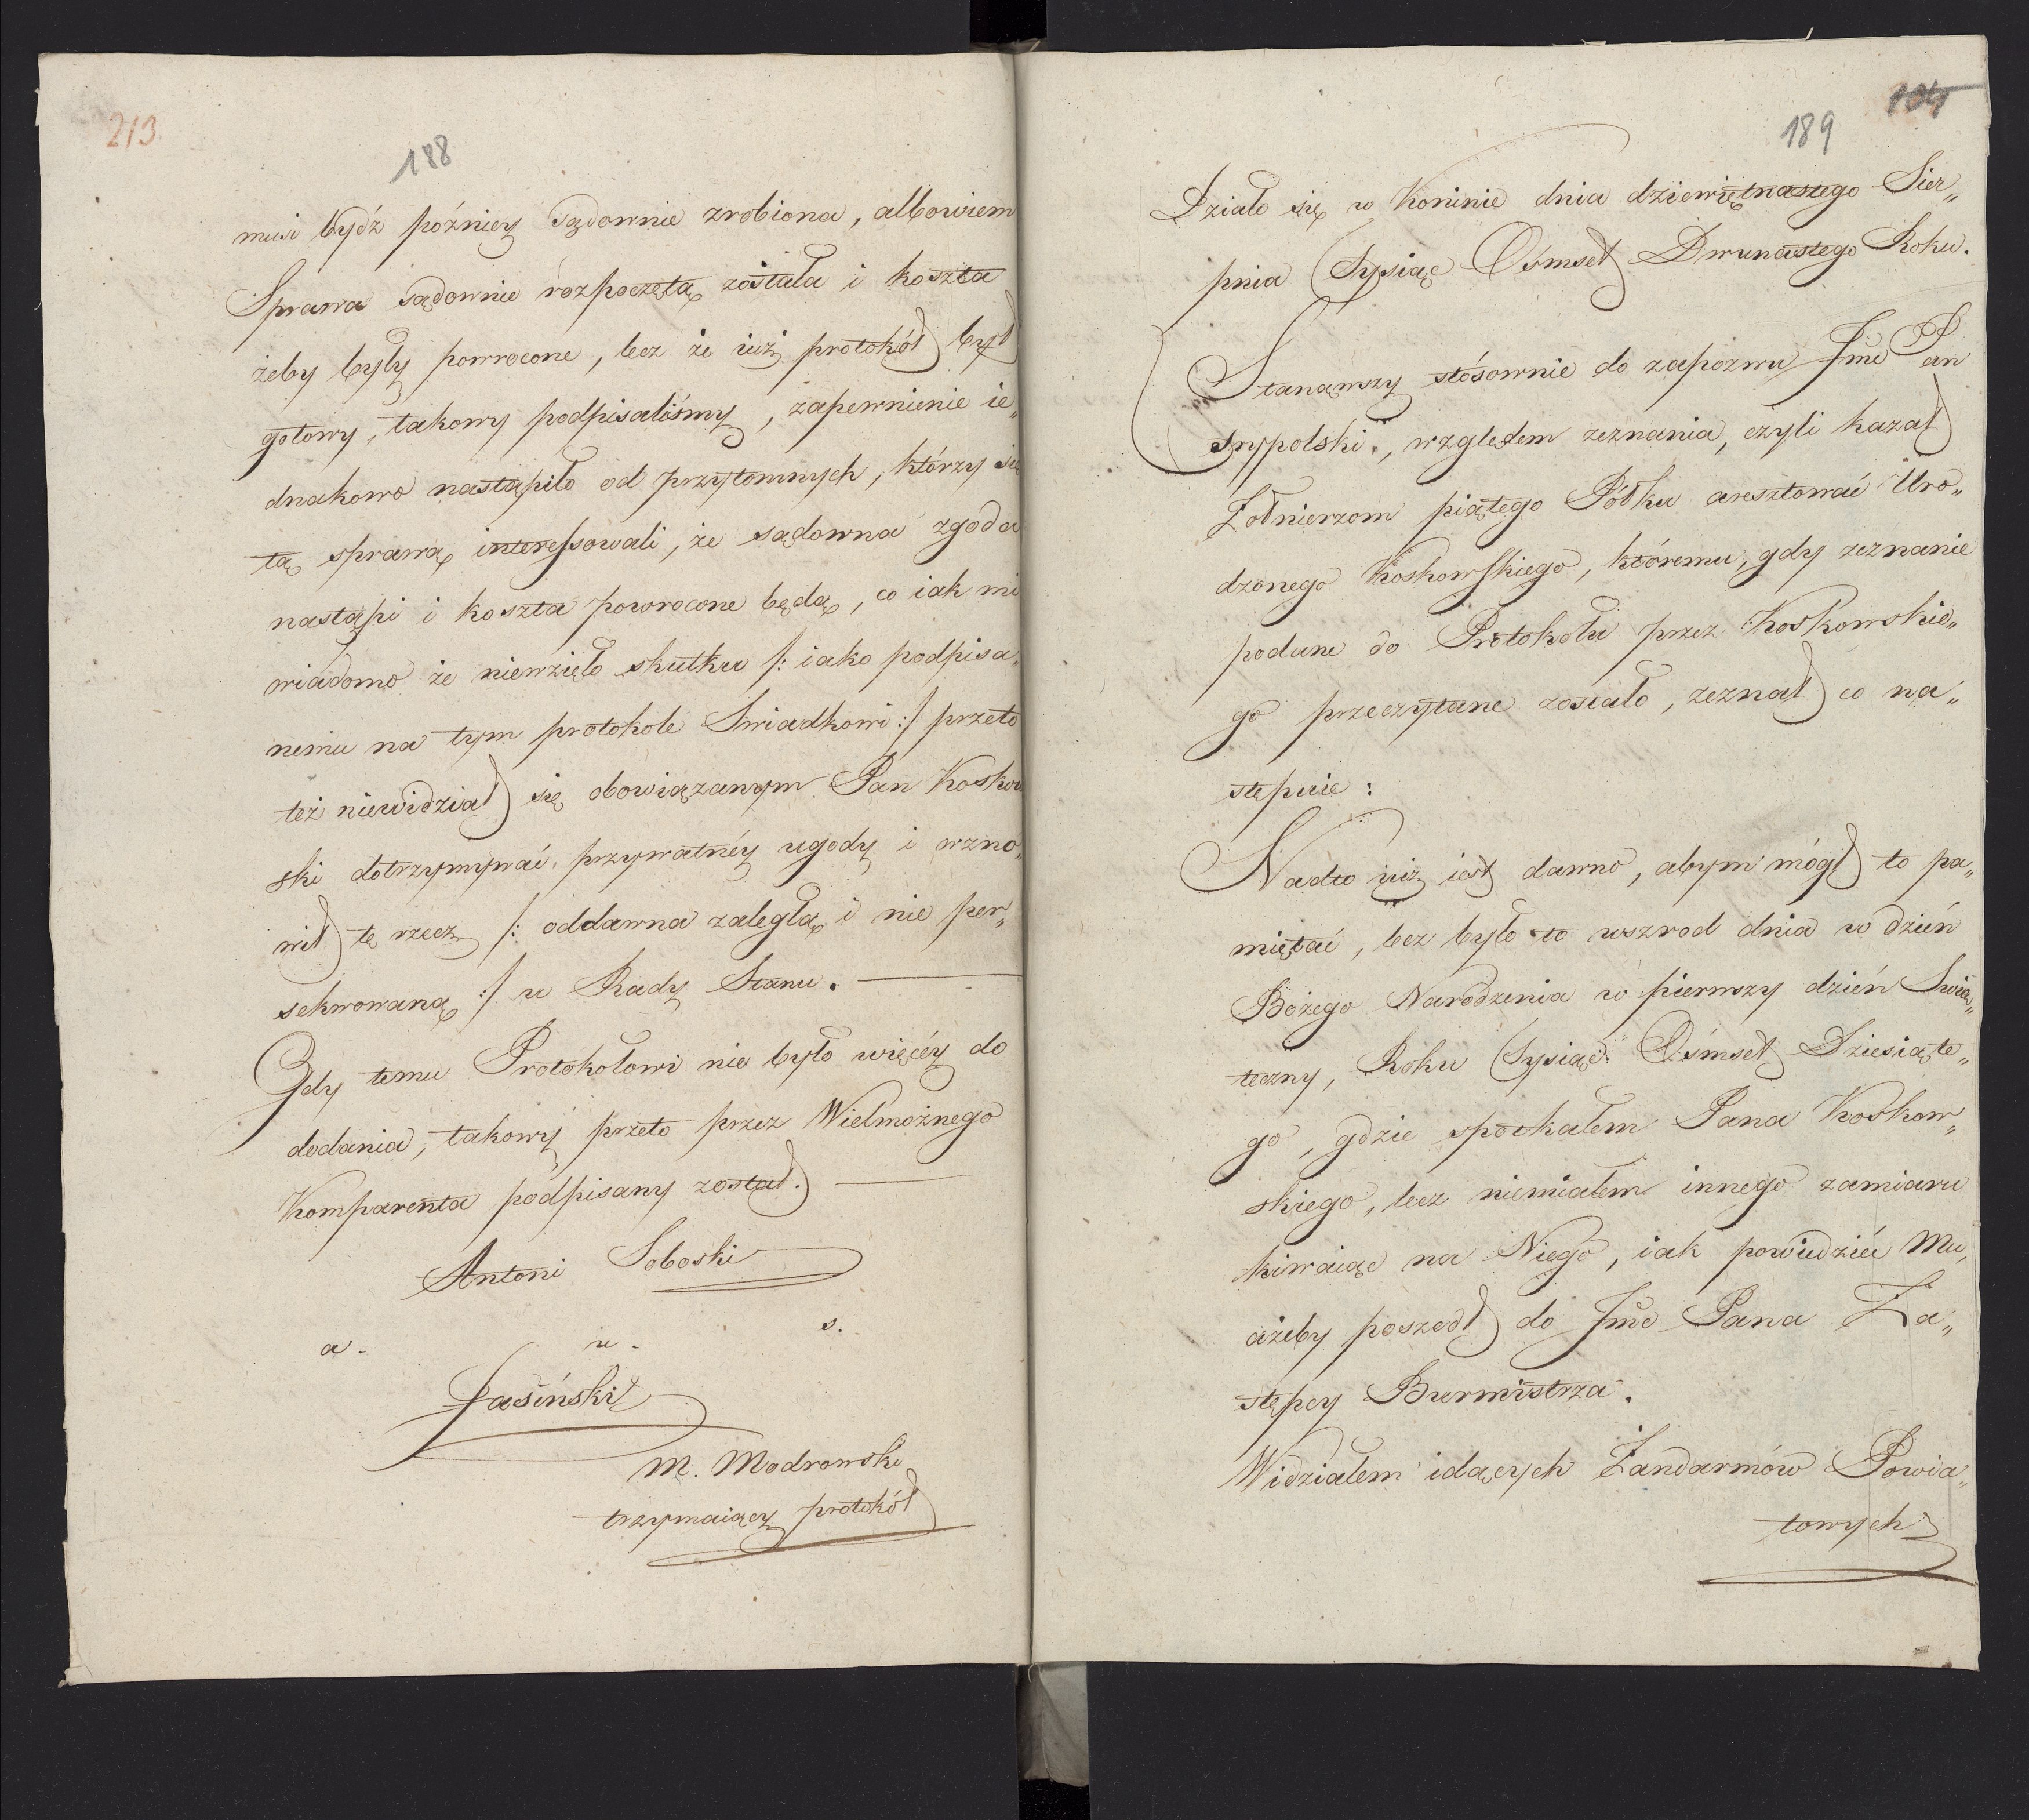 213
188
musi bydź późniey sądownie zrobiona, albowiem
Sprawa sądownie rozpoczętą została i koszta
żeby były powrocone, lecz że iuż protokół był
gotowy, takowy podpisaliśmy, zapewnienie ie„
dnakowo nastąpiło od przytomnych, którzy się
tą sprawą interessowali, że sądowna zgoda
nastąpi i koszta powrocone będą, co iak mi
wiadomo że niewzięło skutku /: iako podpisa„
nemu na tym protokole Swiadkowi :/ przeto
też niewidział się obowiązanym Pan Koskow
ski dotrzymywać przywatnéy ugody i wzno„
wił tę rzecz /: oddawna zaległą i nie per„
sekwowaną :/ u Rady Stanu.
Gdy temu Protokołowi nie było więcéy do
dodania, takowy przeto przez Wielmożnego
Komparenta podpisany został.
Antoni Soboski
a. u. s.
Jasiński
M. Modrowski
trzymaiący protokół
104
189
Działo się w Koninie dnia dziewiętnastego Sier„
pnia Tysiąc Ośmset Dwunastego Roku.
Stanąwszy stósownie do zapozwu Jmć Pan
Trypolski, względem zeznania, czyli kazał
Żołnierzom piątego Półku aresztować Uro„
dzonego Koskowskiego, któremu, gdy zeznanie
podane do Protokołu przez Koskowskie„
go przeczytane zostało, zeznał co na„
stępuie:
Nadto iuż iest dawno, abym mógł to pa„
miętać, lecz było to wszrod dnia w dzień
Bożego Narodzenia w pierwszy dzień Swią„
teczny, Roku Tysiąc Ośmset Dziesiąte„
go, gdzie spotkałem Pana Koskow„
skiego, lecz niemiałem innego zamiaru
kiwaiąc na Niego, iak powiedzieć Mu,
ażeby poszedł do Jmć Pana Za„
stępcy Burmistrza.
Widziałem idących Żandarmów Powia„
towych